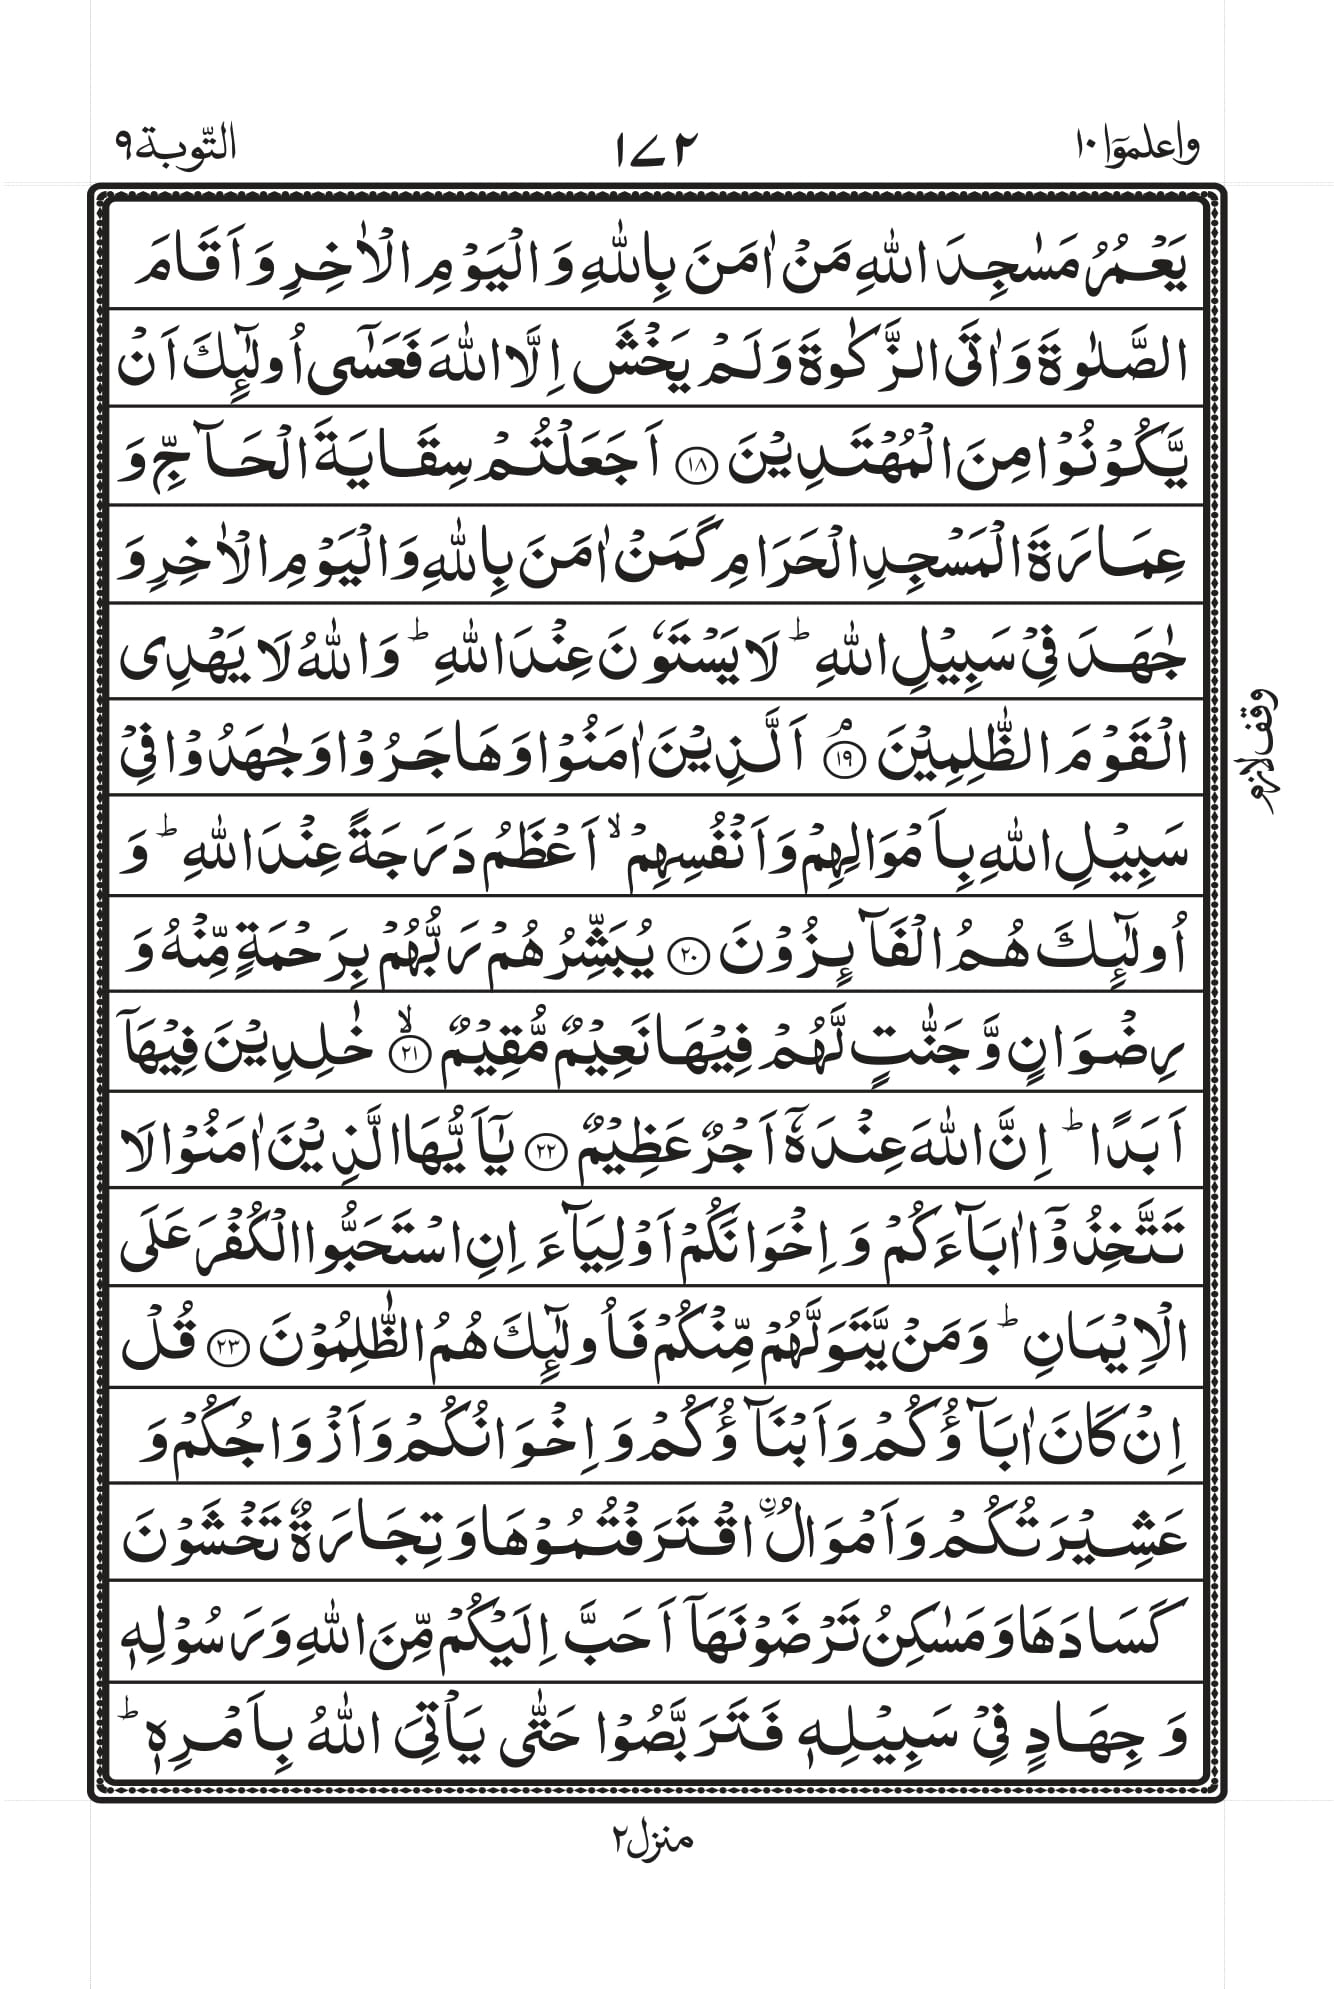 واعلموٓا ١٠
١٧٢
التّوبة ٩
يَعۡمُرُ مَسٰجِدَ اللّٰهِ مَنۡ اٰمَنَ بِاللّٰهِ وَ الۡيَوۡمِ الۡاٰخِرِ وَ اَ قَامَ
الصَّلٰوةَ وَ اٰتَى الزَّكٰوةَ وَ لَمۡ يَخۡشَ اِلَّا اللّٰهَ فَعَسٰٓى اُولٰٓئِكَ اَنۡ
يَّكُوۡنُوۡا مِنَ الۡمُهۡتَدِيۡنَ ۝١٨ اَجَعَلۡتُمۡ سِقَايَةَ الۡحَآجِّ وَ
عِمَارَةَ الۡمَسۡجِدِ الۡحَرَامِ كَمَنۡ اٰمَنَ بِاللّٰهِ وَ الۡيَوۡمِ الۡاٰخِرِ وَ
جٰهَدَ فِىۡ سَبِيۡلِ اللّٰهِ ؕ لَا يَسۡتَوٗنَ عِنۡدَ اللّٰهِ ؕ وَ اللّٰهُ لَا يَهۡدِى
الۡقَوۡمَ الظّٰلِمِيۡنَ ۝١٩ۘ اَلَّذِيۡنَ اٰمَنُوۡا وَ هَاجَرُوۡا وَ جٰهَدُوۡا فِىۡ
سَبِيۡلِ اللّٰهِ بِاَمۡوَالِهِمۡ وَ اَنۡفُسِهِمۡ ۙ اَعۡظَمُ دَرَجَةً عِنۡدَ اللّٰهِ ؕ وَ
اُولٰٓئِكَ هُمُ الۡفَآئِزُوۡنَ ۝٢٠ يُبَشِّرُهُمۡ رَبُّهُمۡ بِرَحۡمَةٍ مِّنۡهُ وَ
رِضۡوَانٍ وَّ جَنّٰتٍ لَّهُمۡ فِيۡهَا نَعِيۡمٌ مُّقِيۡمٌ ۝٢١ۙ خٰلِدِيۡنَ فِيۡهَاۤ
اَبَدًا ؕ اِنَّ اللّٰهَ عِنۡدَهٗۤ اَجۡرٌ عَظِيۡمٌ ۝٢٢ يٰۤاَيُّهَا الَّذِيۡنَ اٰمَنُوۡا لَا
تَتَّخِذُوۡۤا اٰبَآءَكُمۡ وَ اِخۡوَانَكُمۡ اَوۡلِيَآءَ اِنِ اسۡتَحَبُّوا الۡكُفۡرَ عَلَى
الۡاِيۡمَانِ ؕ وَ مَنۡ يَّتَوَلَّهُمۡ مِّنۡكُمۡ فَاُولٰٓئِكَ هُمُ الظّٰلِمُوۡنَ ۝٢٣ قُلۡ
اِنۡ كَانَ اٰبَآؤُكُمۡ وَ اَبۡنَآؤُكُمۡ وَ اِخۡوَانُكُمۡ وَ اَزۡوَاجُكُمۡ وَ
عَشِيۡرَتُكُمۡ وَ اَمۡوَالُ ۨ اقۡتَرَفۡتُمُوۡهَا وَ تِجَارَةٌ تَخۡشَوۡنَ
كَسَادَهَا وَ مَسٰكِنُ تَرۡضَوۡنَهَاۤ اَحَبَّ اِلَيۡكُمۡ مِّنَ اللّٰهِ وَ رَسُوۡلِهٖ
وَ جِهَادٍ فِىۡ سَبِيۡلِهٖ فَتَرَبَّصُوۡا حَتّٰى يَاۡتِىَ اللّٰهُ بِاَمۡرِهٖ ؕ
وقف لازم
منزل ٢